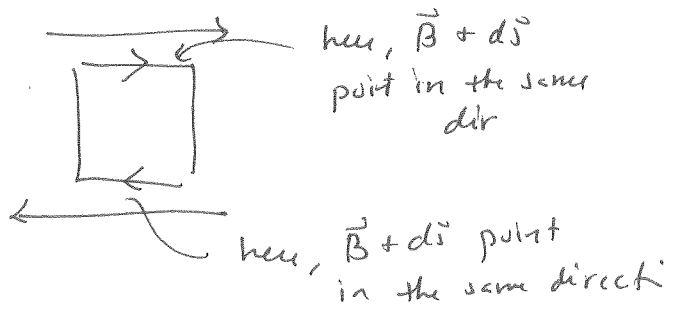 here, B⃗ + ds⃗
point in the same
dir
here, B⃗ + ds⃗ point
in the same directi